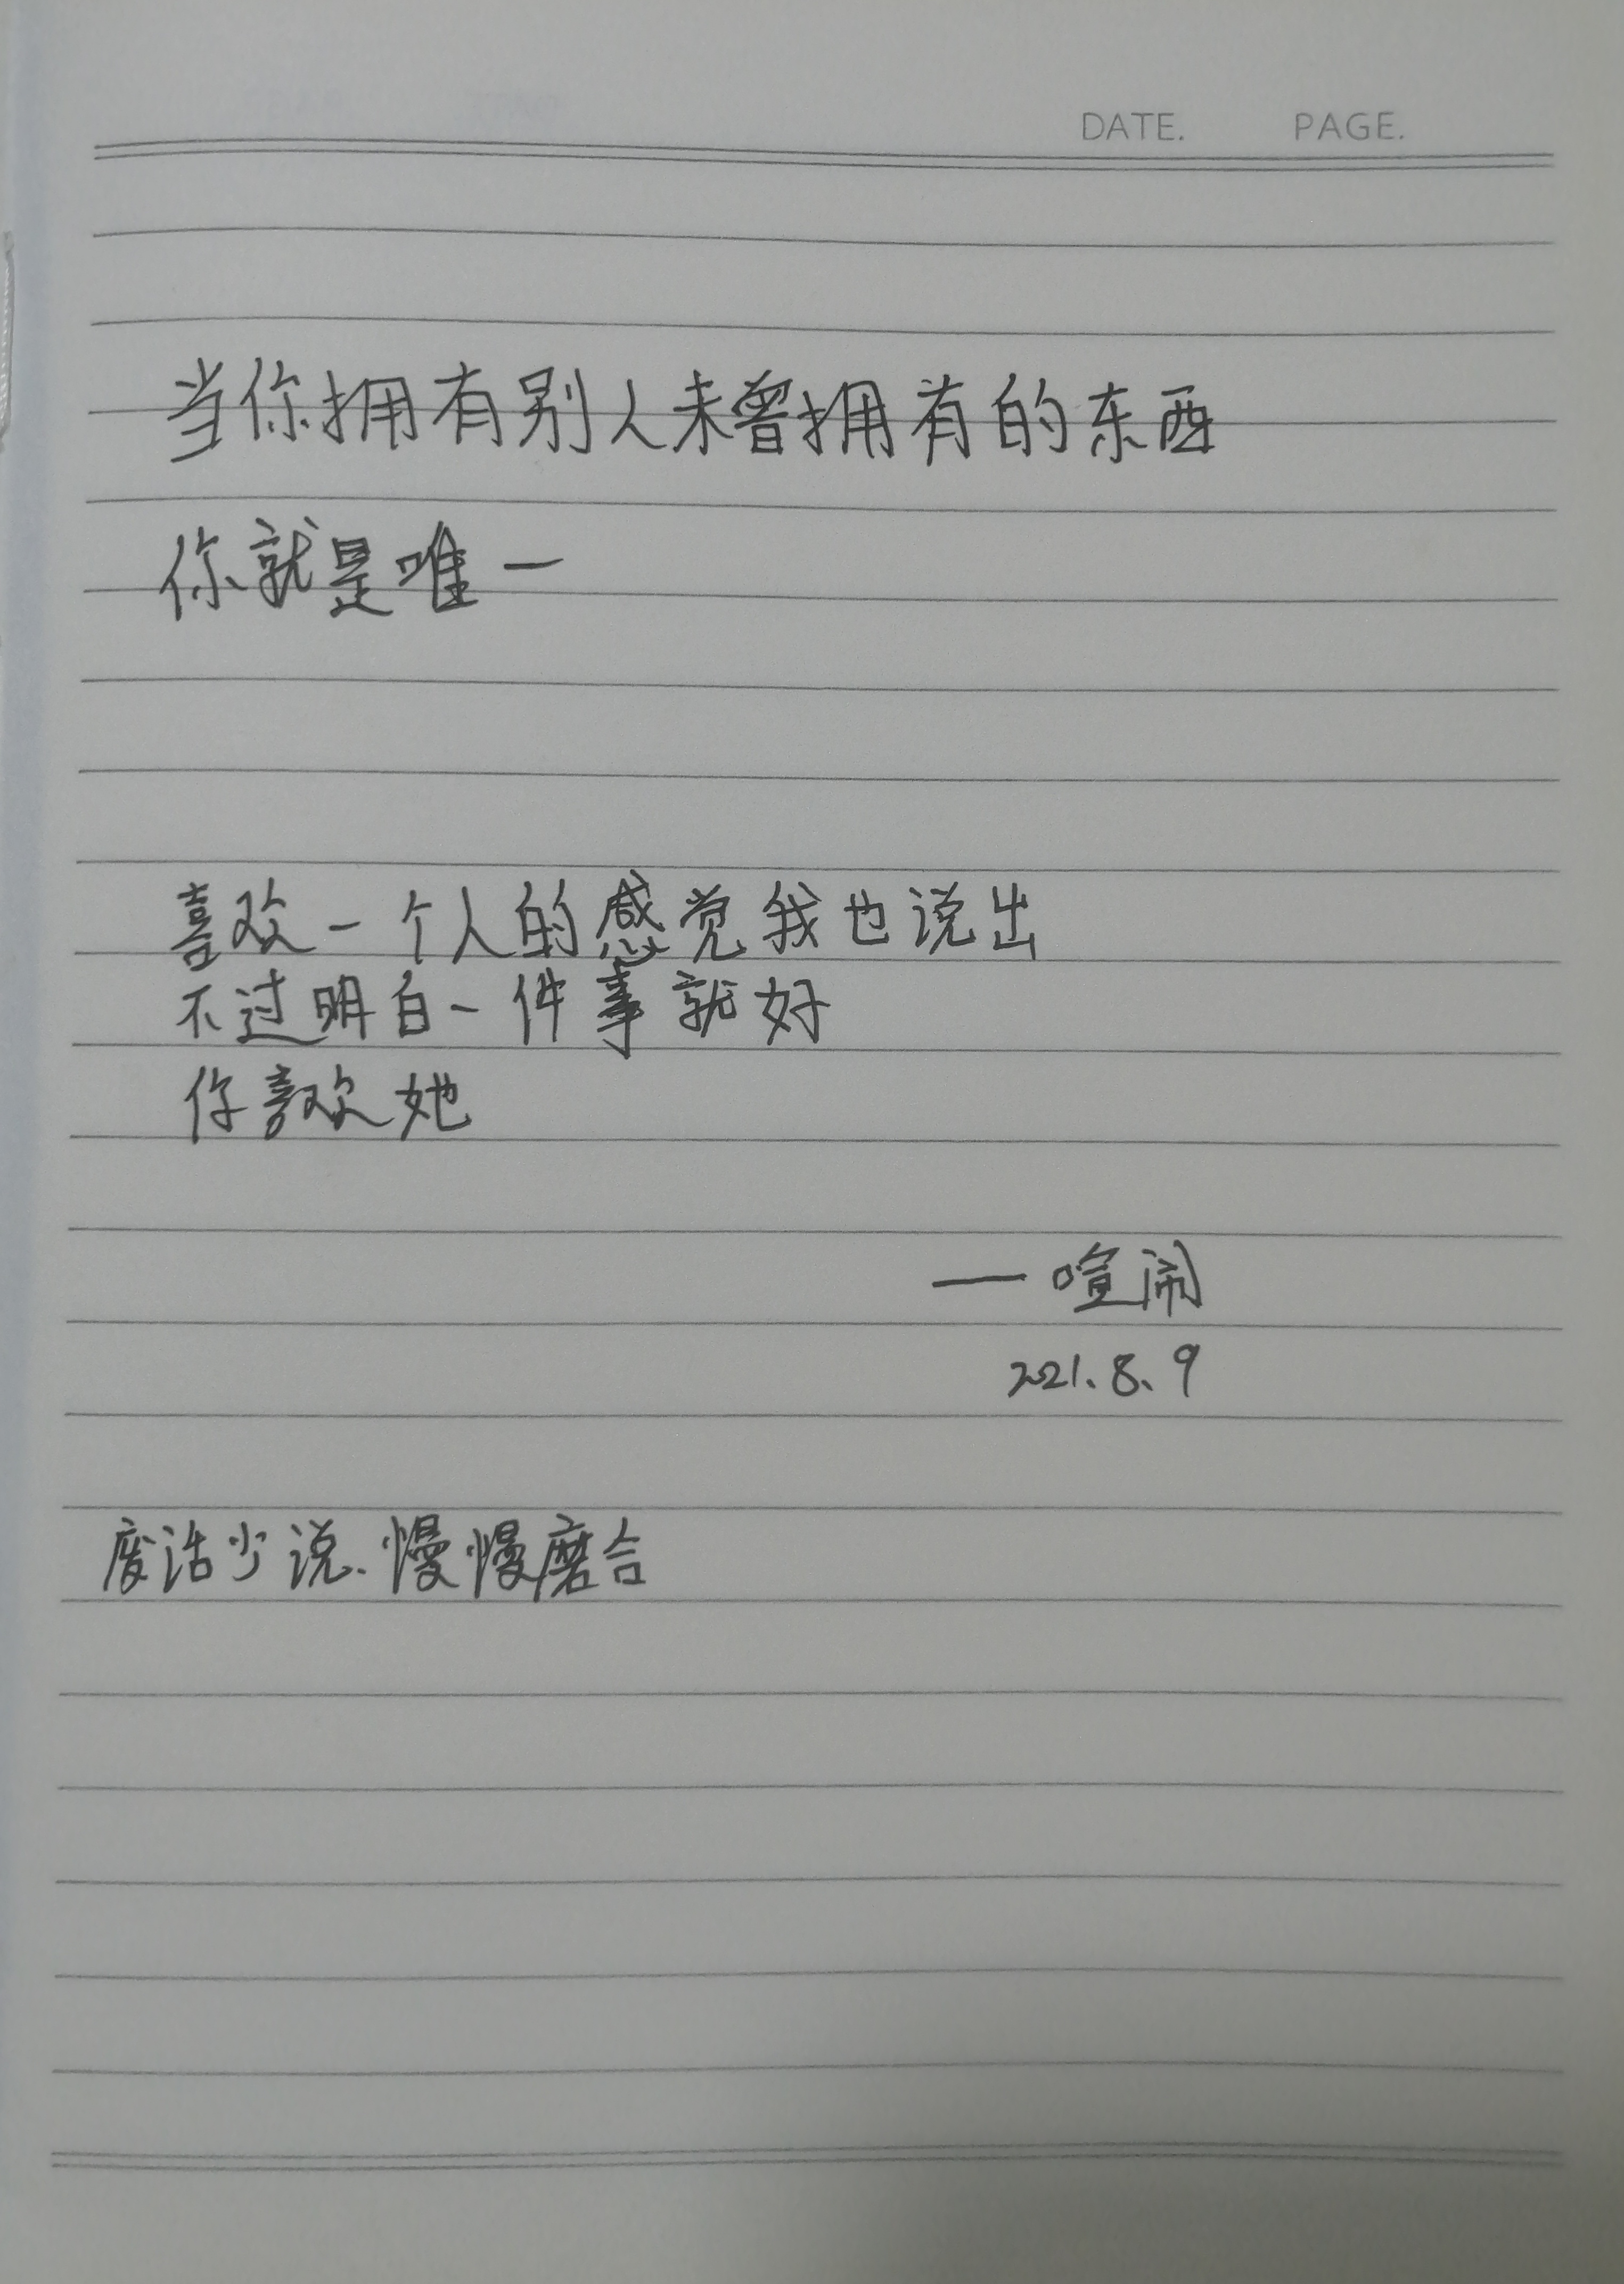 DATE. PAGE.
当你拥有别人未曾拥有的东西
你就是唯一
喜欢一个人的感觉我也说出
不过明白一件事就好
你喜欢她
—喧闹
2021.8.9
废话少说、慢慢磨合